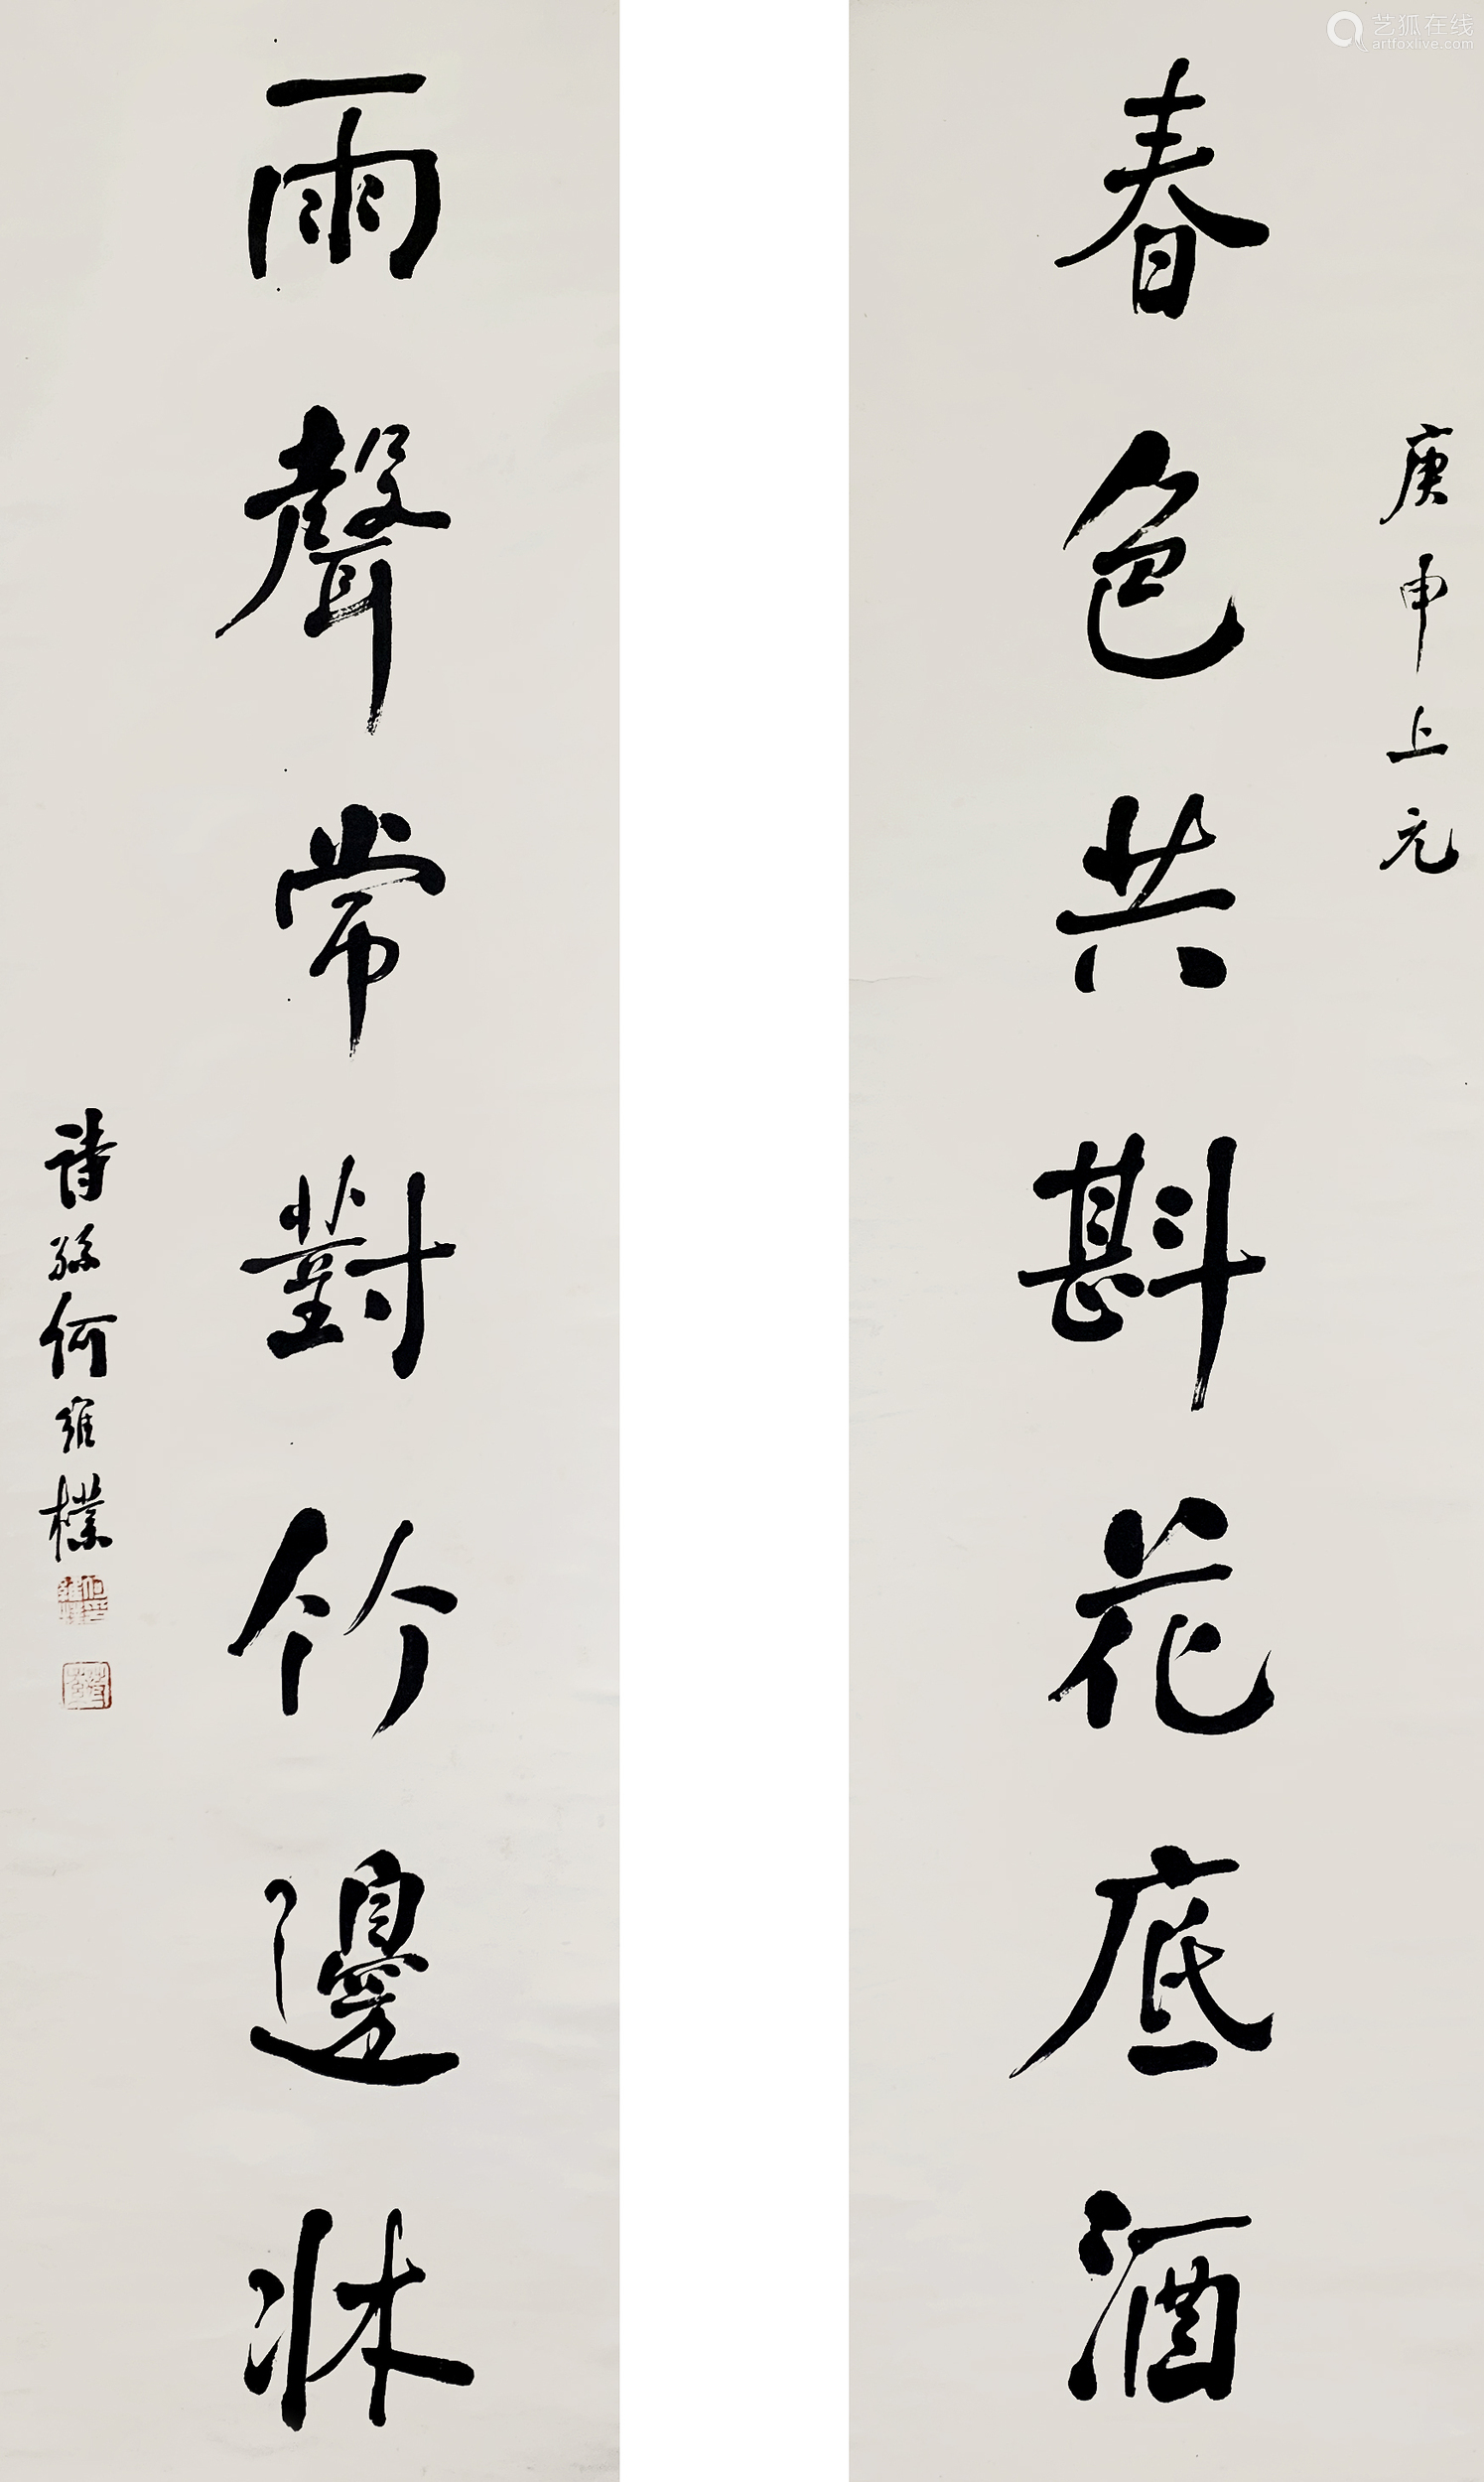 庚申上元
春色共斟花底酒
雨聲常對竹邊牀
詩孫何維樸
艺狐在线
artfoxlive.com